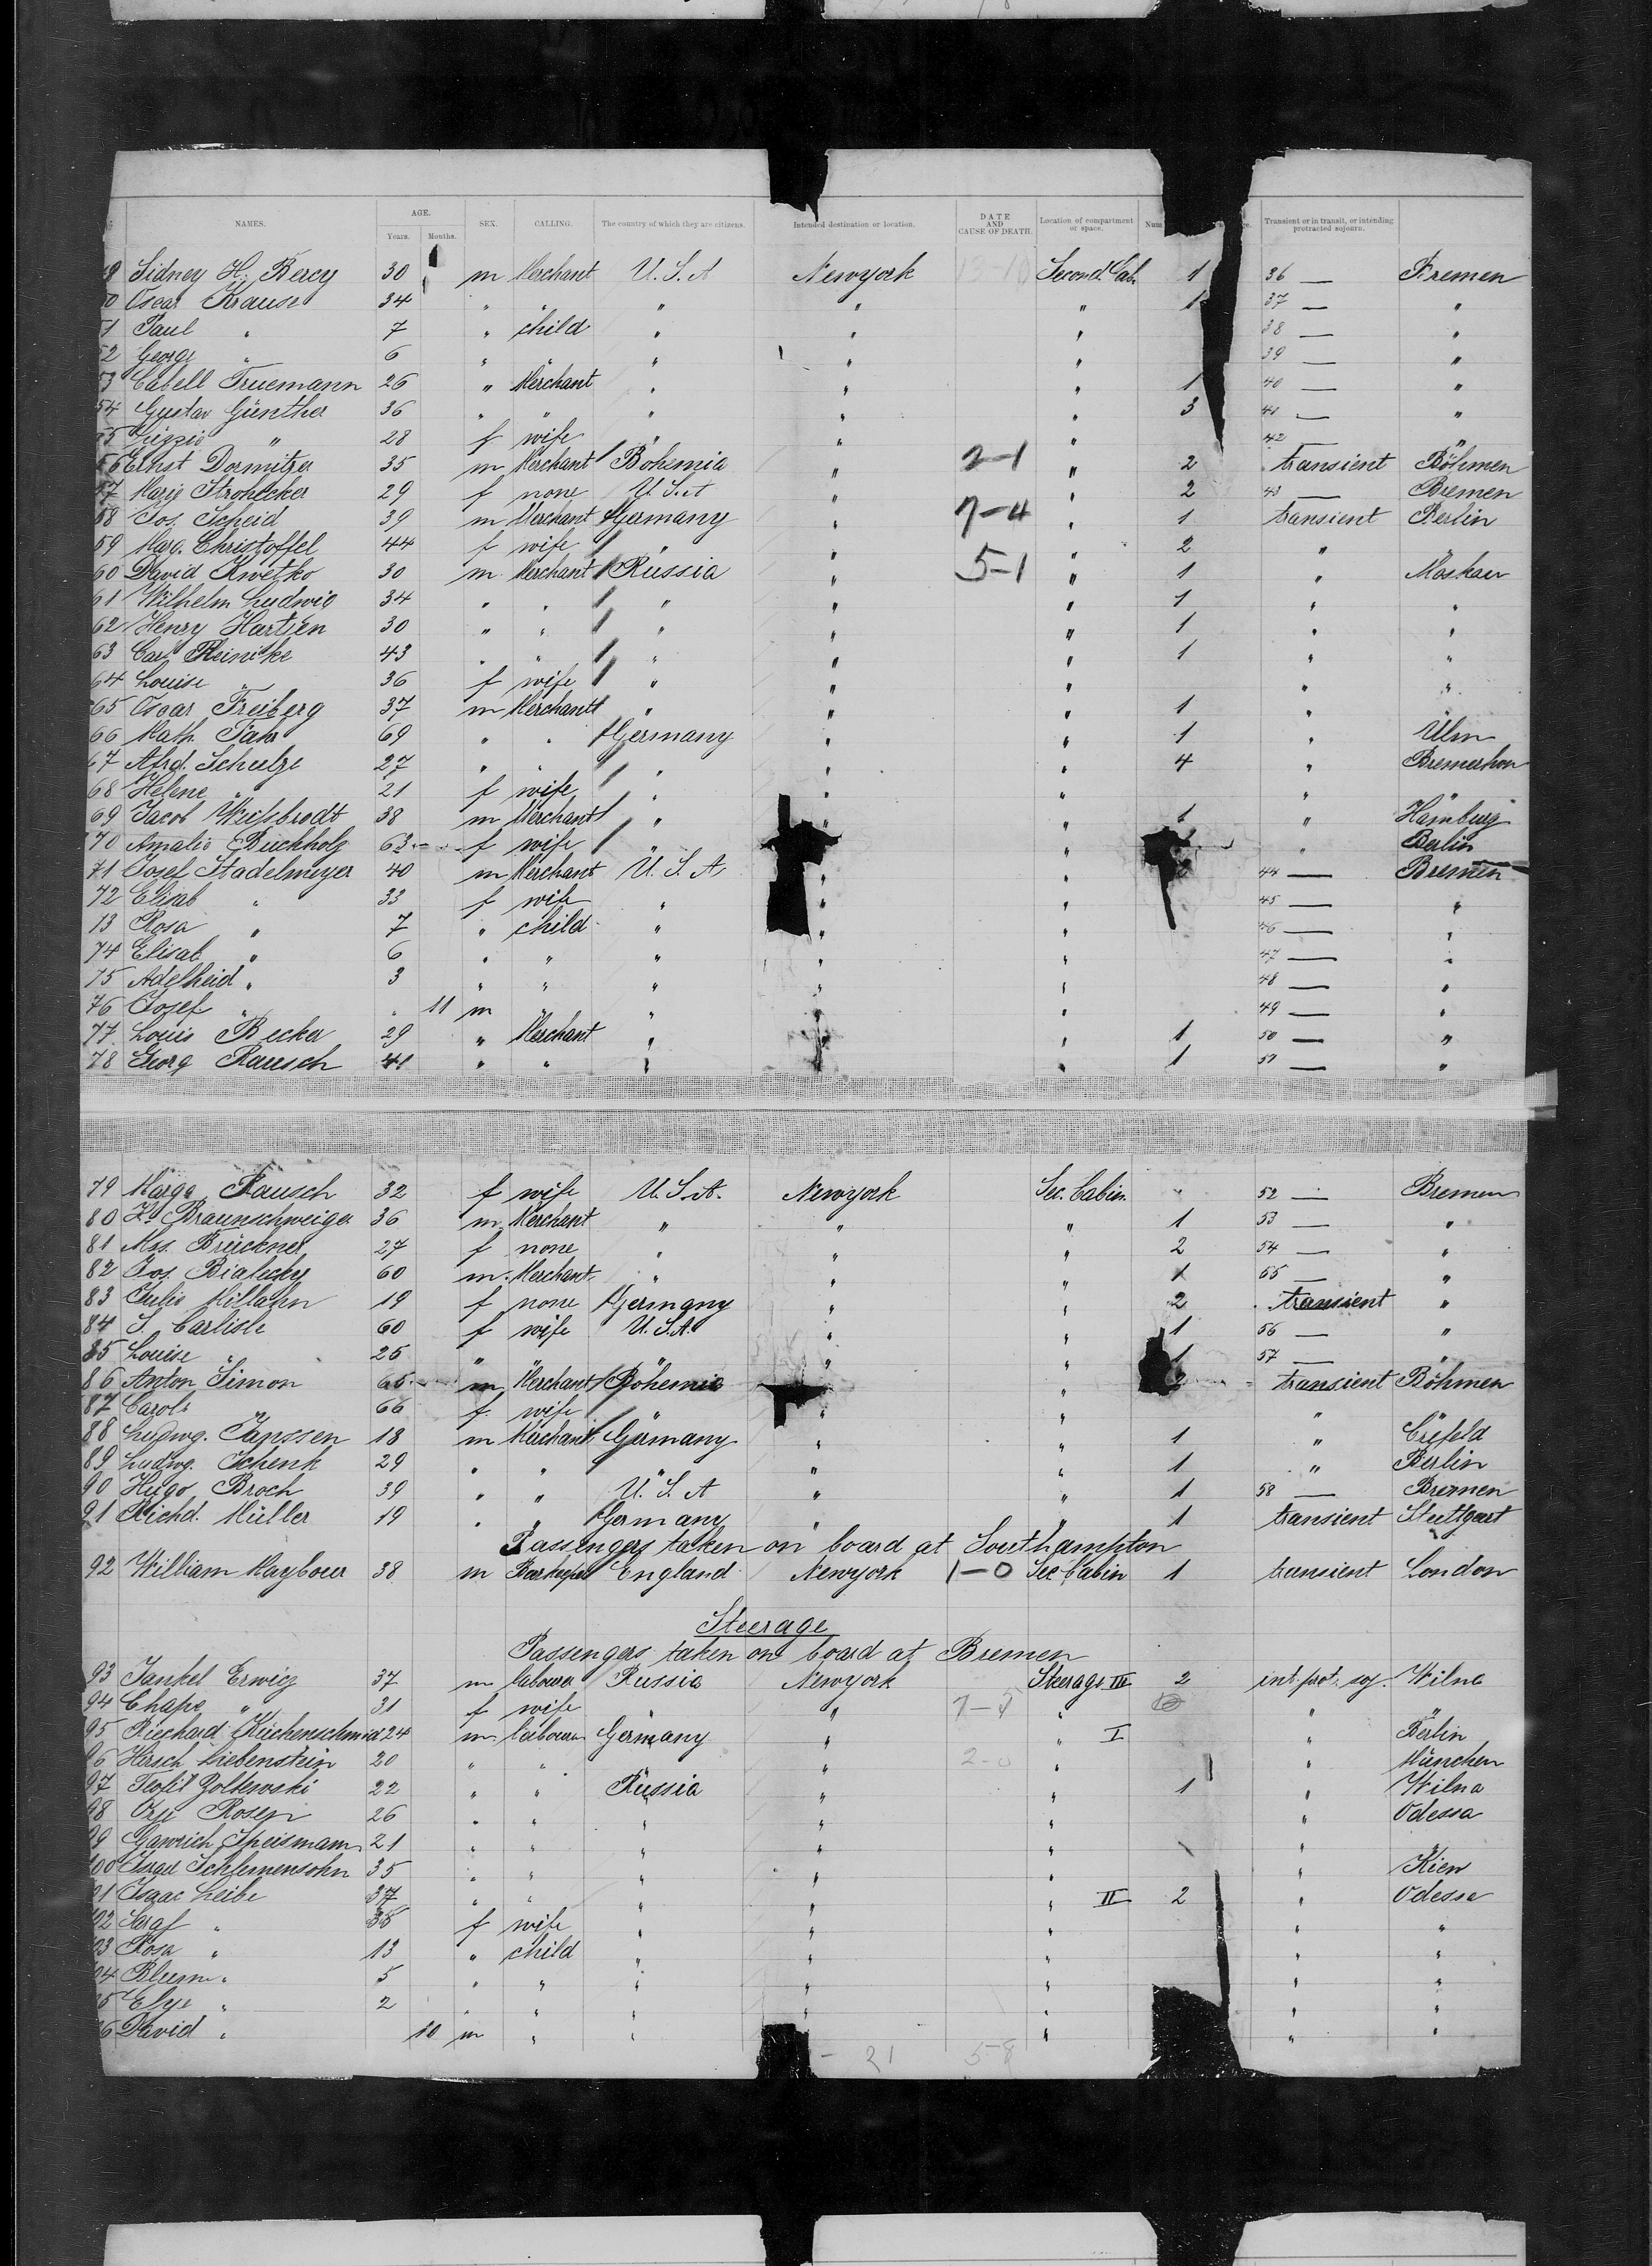 NAMES. AGE. Years. Months. SEX. CALLING. The country of which they are citizens. Intended destination or location. DATE AND CAUSE OF DEATH. Location of compartment or space. Num Transient or in transit, or intending protracted sojourn.
9 Sidney H. Bercy 30 m Merchant U.S.A Newyork Second Cab. 1 36 — Bremen
0 Oscar Krause 34 " " " " " 1 37 — "
51 Paul " 7 " child " " " 38 — "
52 George " 6 " " " " " 39 — "
53 Cabell Truemann 26 " Merchant " " " 1 40 — "
54 Gustav Günther 36 " " " " " 3 41 — "
55 " 28 f wife " " " 42 —
56 Ernst Dormitzer 35 m Merchant Bohemia " 2-1 " 2 transient Böhmen
57 Marie Strohecker 29 f none U.S.A " " 2 43 — Bremen
58 Jos. Scheid 39 m Merchant Germany " 7-4 " 1 transient Berlin
59 Marg. Christoffel 44 f wife " " " 2 " "
60 David Kwetko 30 m Merchant Russia " 5-1 " 1 " Moskau
61 Wilhelm Ludwig 34 " " " " " 1 " "
62 Henry Hartjen 30 " " " " " 1 " "
63 Carl Reinicke 43 " " " " " 1 " "
64 Louise " 36 f wife " " " " "
65 Oscar Freiberg 37 m Merchant " " " 1 " "
66 Math. 69 " " Germany " " 1 " Ulm
67 Afrd. Schulze 27 " " " " " 4 " Bremerhvn
68 Helene " 21 f wife " " " " "
69 Jacob Weissbrodt 38 m Merchant " " " 1 " Hamburg
70 Amalie Buchholz 63 f wife " " " Berlin
71 Josef Stadelmeyer 40 m Merchant U.S.A " " 44 — Bremen
72 Elisab " 33 f wife " " " 45 — "
73 Rosa " 7 " child " " " 46 — "
74 Elisab " 6 " " " " " 47 — "
75 Adelheid " 3 " " " " " 48 — "
76 Josef " " 11 m " " " " 49 — "
77 Louis Becker 29 " Merchant " " " 1 50 — "
78 Georg Rausch 41 " " " " " 1 51 — "
79 Marga Rausch 32 f wife U.S.A. Newyork Sec. Cabin " 52 — Bremen
80 Braunschweiger 36 m Merchant " " " 1 53 — "
81 Mss. Brückner 27 f none " " " 2 54 — "
82 Jos. Bialecky 60 m Merchant " " " 1 55 — "
83 Julie Millahn 19 f none Germany " " 2 transient "
84 J. Carlisle 60 f wife U.S.A. " " 1 56 — "
85 Louise " 25 " " " " " 1 57 — "
86 Anton Simon 65 m Merchant Bohemia " " 2 transient Böhmen
87 Carole " 66 f wife " " " " "
88 Ludwg. Janssen 18 m Merchant Germany " " 1 " Crefeld
89 Ludwg. Schenk 29 " " " " " 1 " Berlin
90 Hugo Broch 39 " " U.S.A " " 1 58 — Bremen
91 Richd. Müller 19 " " Germany " " 1 transient Stuttgart
Passengers taken on board at Southampton
92 William Maybour 38 m Barkeeper England Newyork 1-0 Sec Cabin 1 transient London
Steerage
Passengers taken on board at Bremen
93 Jankel Erwicz 37 m labourer Russia Newyork Steerage III 2 int. prot. soj. Wilna
94 Chape " 31 f wife " " " " "
95 Riechard Küchenschmid 24 m labourer Germany " " I " Berlin
96 Hirsch Liebenstein 20 " " " " 2-0 " " München
97 Teofil Zolkewski 22 " " Russia " " 1 " Wilna
98 Rosen 26 " " " " " " Odessa
99 Gawrich Speismann 21 " " " " " "
100 Schlemensohn 35 " " " " " " Kiew
01 Isaac Leibe 37 " " " " " II 2 " Odessa
102 Saraf " 35 f wife " " " " "
03 Rosa " 13 " child " " " " "
04 Blume " 5 " " " " " " "
05 Elye " 2 " " " " " " "
06 David " 10 m " " " " " "
21 5-8